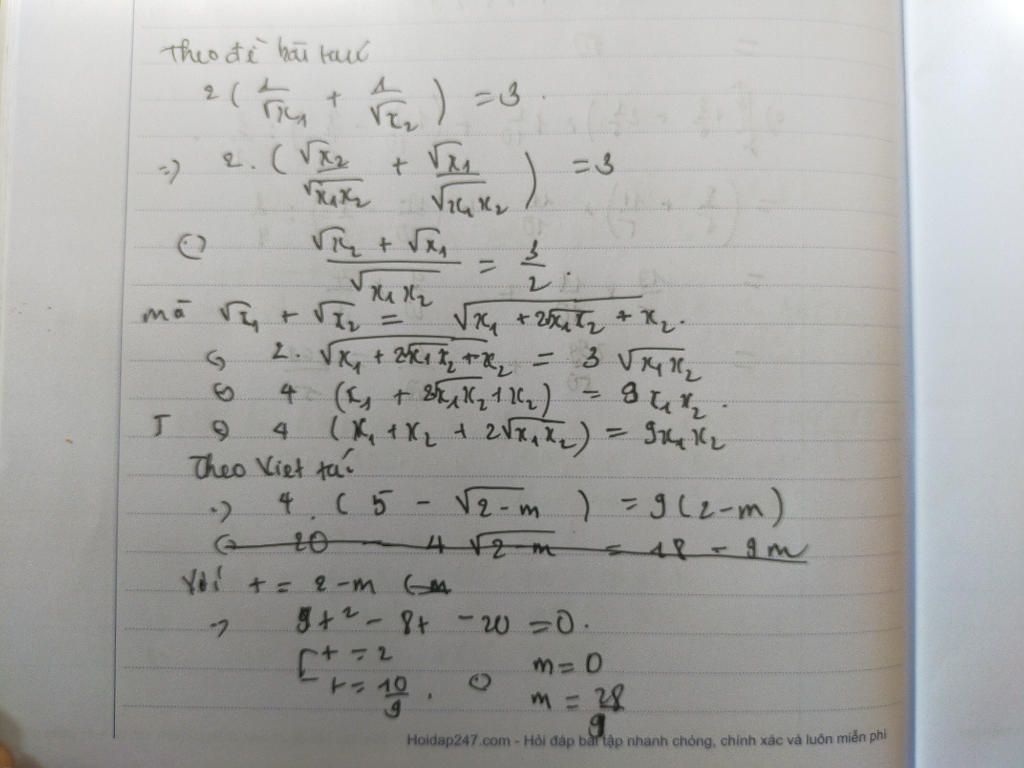 Theo đề bài ta có
2 ( 1/√x₁ + 1/√x₂ ) = 3.
=> 2. ( √x₂/√x₁x₂ + √x₁/√x₁x₂ ) = 3
(√x₂ + √x₁)/√x₁x₂ = 3/2.
mà √x₁ + √x₂ = √(x₁ + 2√x₁x₂ + x₂).
2. √(x₁ + 2√x₁x₂ + x₂) = 3 √x₁x₂
4 (x₁ + 2√x₁x₂ + x₂) = 9 x₁x₂.
4 (x₁ + x₂ + 2√x₁x₂) = 9x₁x₂
Theo Viet ta có
=> 4. ( 5 - √2-m ) = 9(2-m)
20 - 4 √2-m = 18 - 9m
Với t = 2-m
=> 9t² - 8t - 20 = 0.
[ t = 2 m = 0
t = 10/9. m = 28/9
Hoidap247.com - Hỏi đáp bài tập nhanh chóng, chính xác và luôn miễn phí